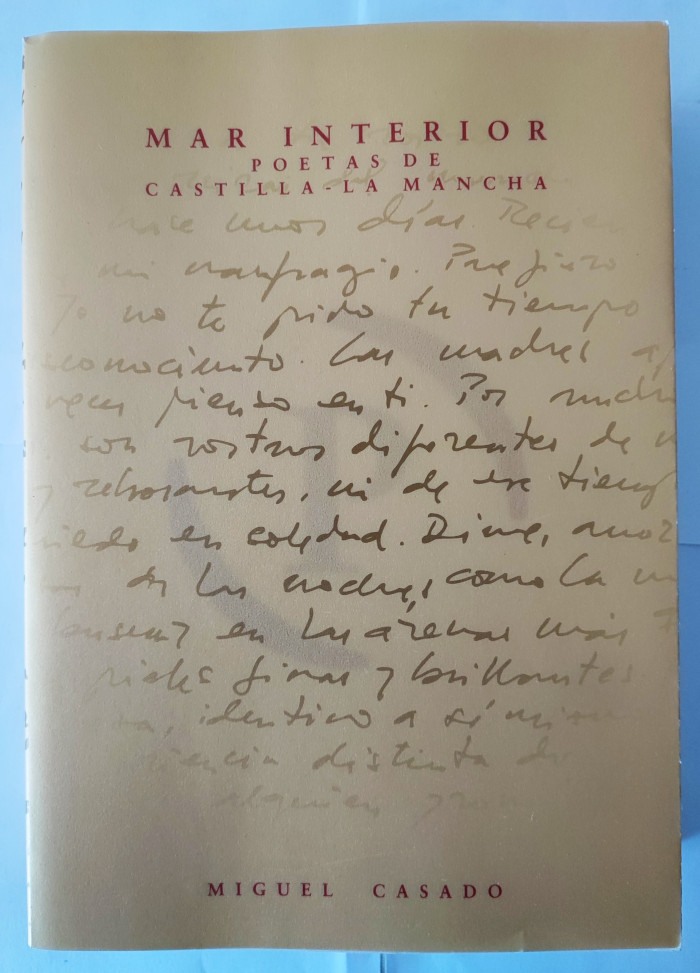 MAR INTERIOR
POETAS DE
CASTILLA-LA MANCHA
hace unos días. Recien
mi naufragio. Prefiero
Yo no te pido tu tiempo
conocimiento. Las madres
veces pienso en ti. Por
son rostros diferentes de
y rebosantes, ni de ese tiempo
miedo en soledad. Dime, amor
de las noches, como la
en las arenas más
pieles finas y brillantes
identico a sí mismo
distinta de
alguien
MIGUEL CASADO